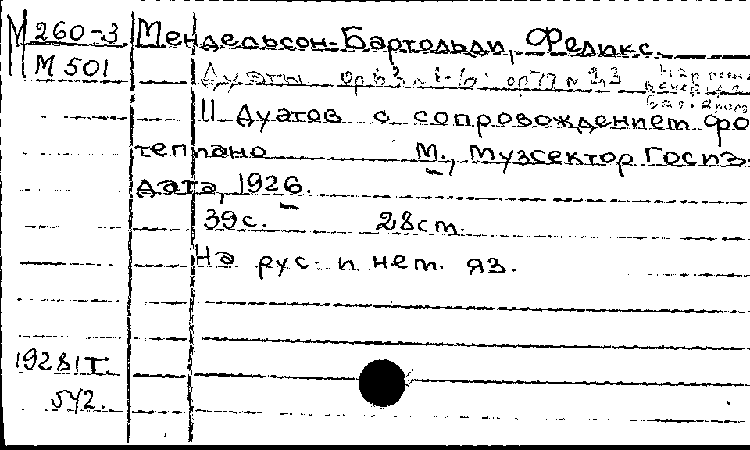 М 260-3 Мендельсон-Бартольди, Феликс.
М 501
Дуэты op. 63 № 1-6; op. 77 № 1,3
11 дуэтов с сопровождением фо
тепиано М., Музсектор Госиз
дата, 1926.
39 с. 28 cm.
На рус. и нем. яз.
1928 IT.
542.